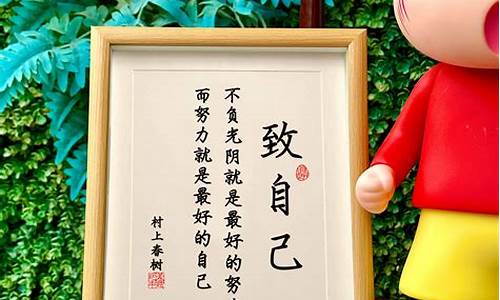 致自己
不负光阴就是最好的努
而努力就是最好的自己
村上春树